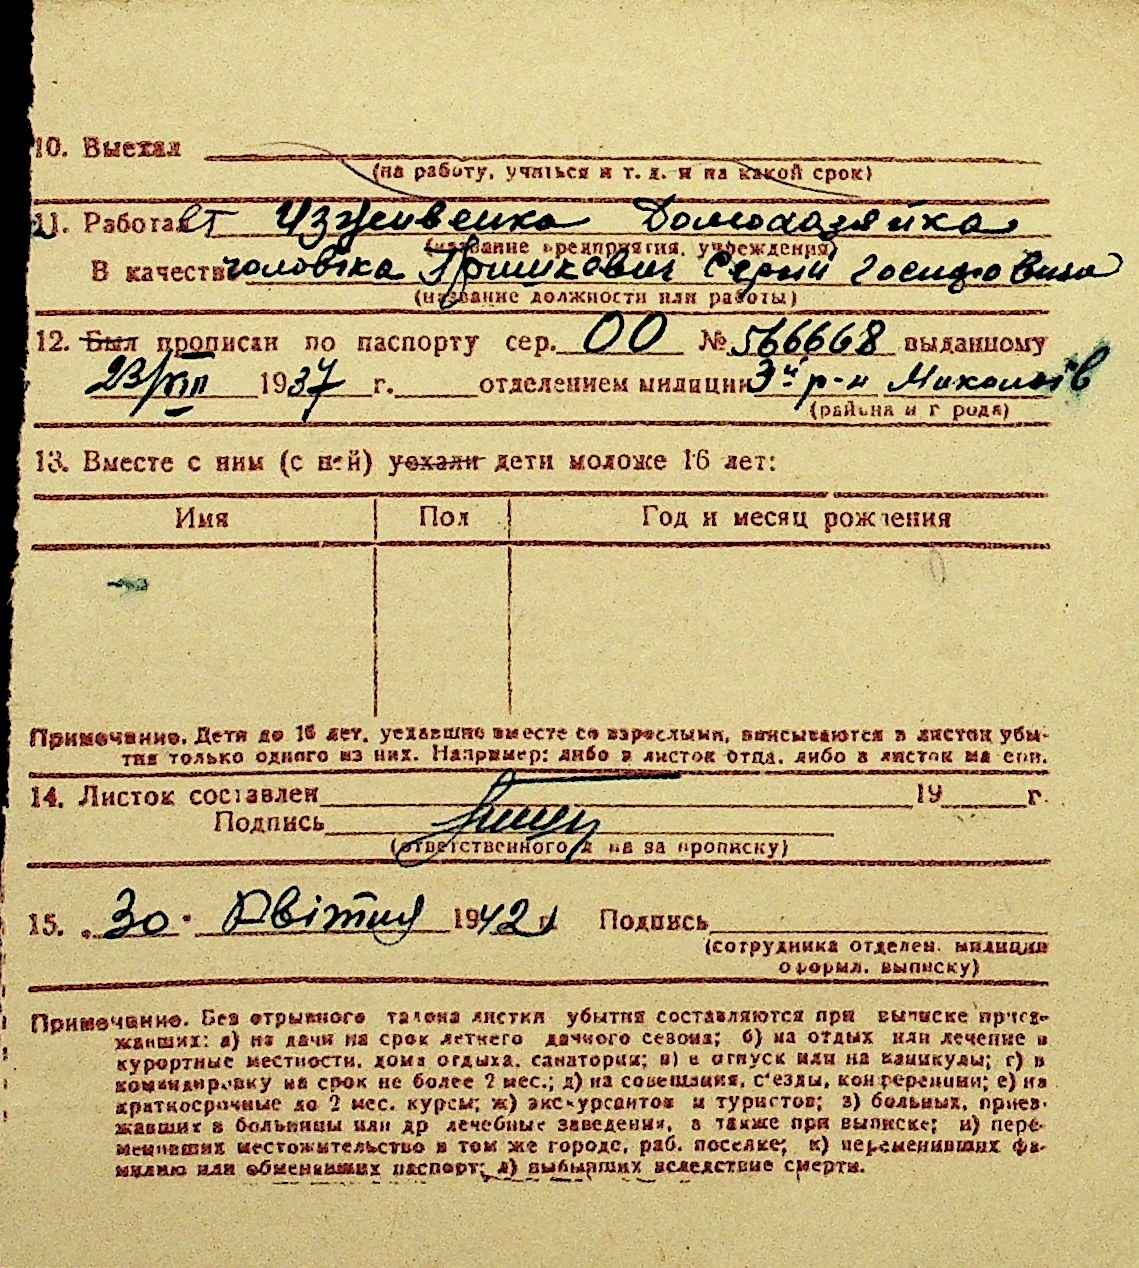 10. Выехал
(на работу, учиться и т. д. и на какой срок)
11. Работает Изживенка Домохазяйка
(название предприятия, учреждения)
В качестве чоловіка Гришкович Сергій Госипович
(название должности или работы)
12. Был прописан по паспорту сер. 00 № 566668 выданному
23/VIII 1937 г. отделением милиции 3й р-н Миколаїв
(района и города)
13. Вместе с ним (с ней) уехали дети моложе 16 лет:
Имя Пол Год и месяц рождения
Примечание. Дети до 16 лет, уехавшие вместе со взрослыми, вписываются в листок убы-
тия только одного из них. Например: либо в листок отца, либо в листок матери.
14. Листок составлен 19 г.
Подпись
(ответственного за прописку)
15. 30. Квітня 1942 г. Подпись
(сотрудника отделен. милиции
оформл. выписку)
Примечание. Без отрывного талона листки убытия составляются при выписке приез-
жавших: а) на дачи на срок летнего дачного сезона; б) на отдых или лечение в
курортные местности, дома отдыха, санатории; в) в отпуск или на каникулы; г) в
командировку на срок не более 2 мес.; д) на совещания, с'езды, конференции; е) на
краткосрочные до 2 мес. курсы; ж) экскурсантов и туристов; з) больных, приез-
жавших в больницы или др лечебные заведения, а также при выписке; и) пере-
менивших местожительство в том же городе, раб. поселке; к) переменивших фа-
милию или обменявших паспорт; л) выбывших вследствие смерти.